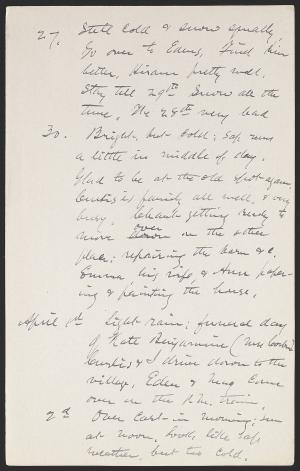 27. Still cold & snow squally,
Go over to Edens, find him
better, Hiram pretty well.
Stay till 29th Snow all the
time, The 28th very bad
30. Bright, but cold; sap runs
a little in middle of day.
Glad to be at the old spot again,
Curtis's family all well, & very
busy. Chant getting ready to
move over on the other
place, repairing the barn &c,
Emma his wife, & Ann paper-
ing & painting the house.
April 1st Light rain; funeral day
of Kate Benjamine (Mrs
Curtis & I drive down to the
village, Eden & Mag Came
over on the P.M. train,
2d Over Cast in morning; sun
at noon. Looks like sap
weather, but too Cold.